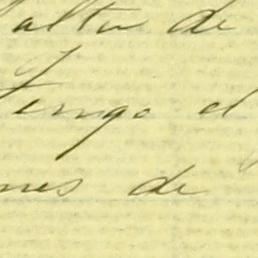 altu de
Tengo el
nes de